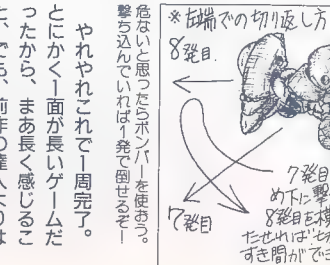 ※左端での切り返し方
8発目.
7発目
め下に撃
8発目を横
たせれば七
すき間がで
7発目
危ないと思ったらボンバーを使おう。
撃ち込んでいれば1発で倒せるぞー
やれやれこれで1周完了。
とにかく1面が長いゲームだ
ったから、まあ長く感じるこ
と、でも、前作の達人よりは